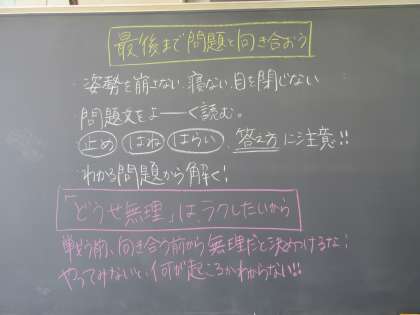 最後まで問題と向き合おう
・姿勢を崩さない、寝ない、目を閉じない
・問題文をよーーく読む。
・止め はね はらい、答え方に注意!!
・わかる問題から解く!
「どうせ無理」は、ラクしたいから
戦う前、向き合う前から無理だと決めつけるな!
やってみないと、何が起こるかわからない!!